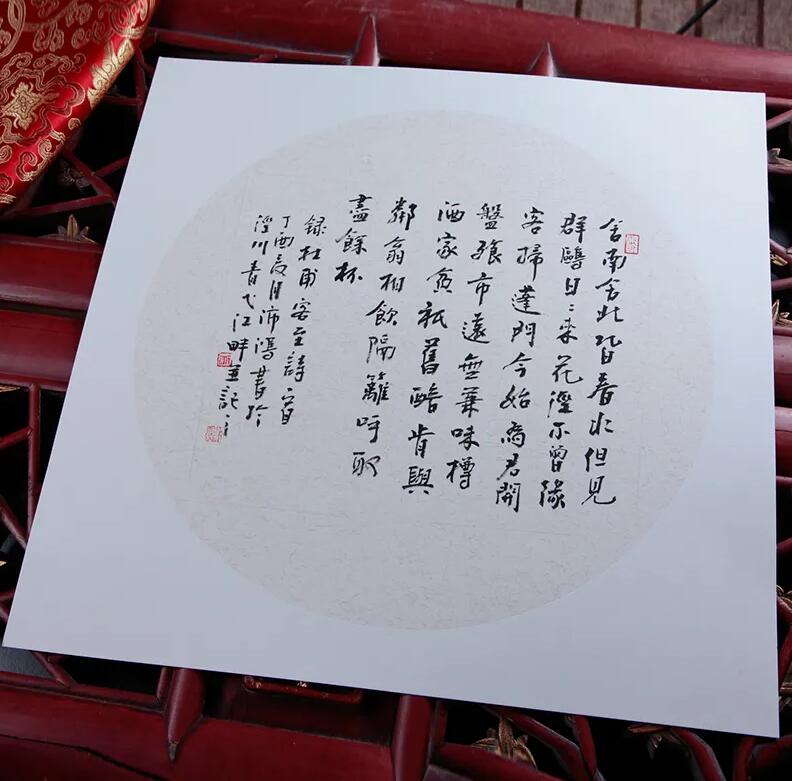 舍南舍北皆春水但見
群鷗日々來花徑不曾緣
客掃蓬門今始為君開
盤飧市遠無兼味樽
酒家貧祇舊醅肯與
鄰翁相飲隔籬呼取
盡餘杯
録杜甫客至詩一首
丁酉夏月沛鴻書於
涇川青弋江畔並記之